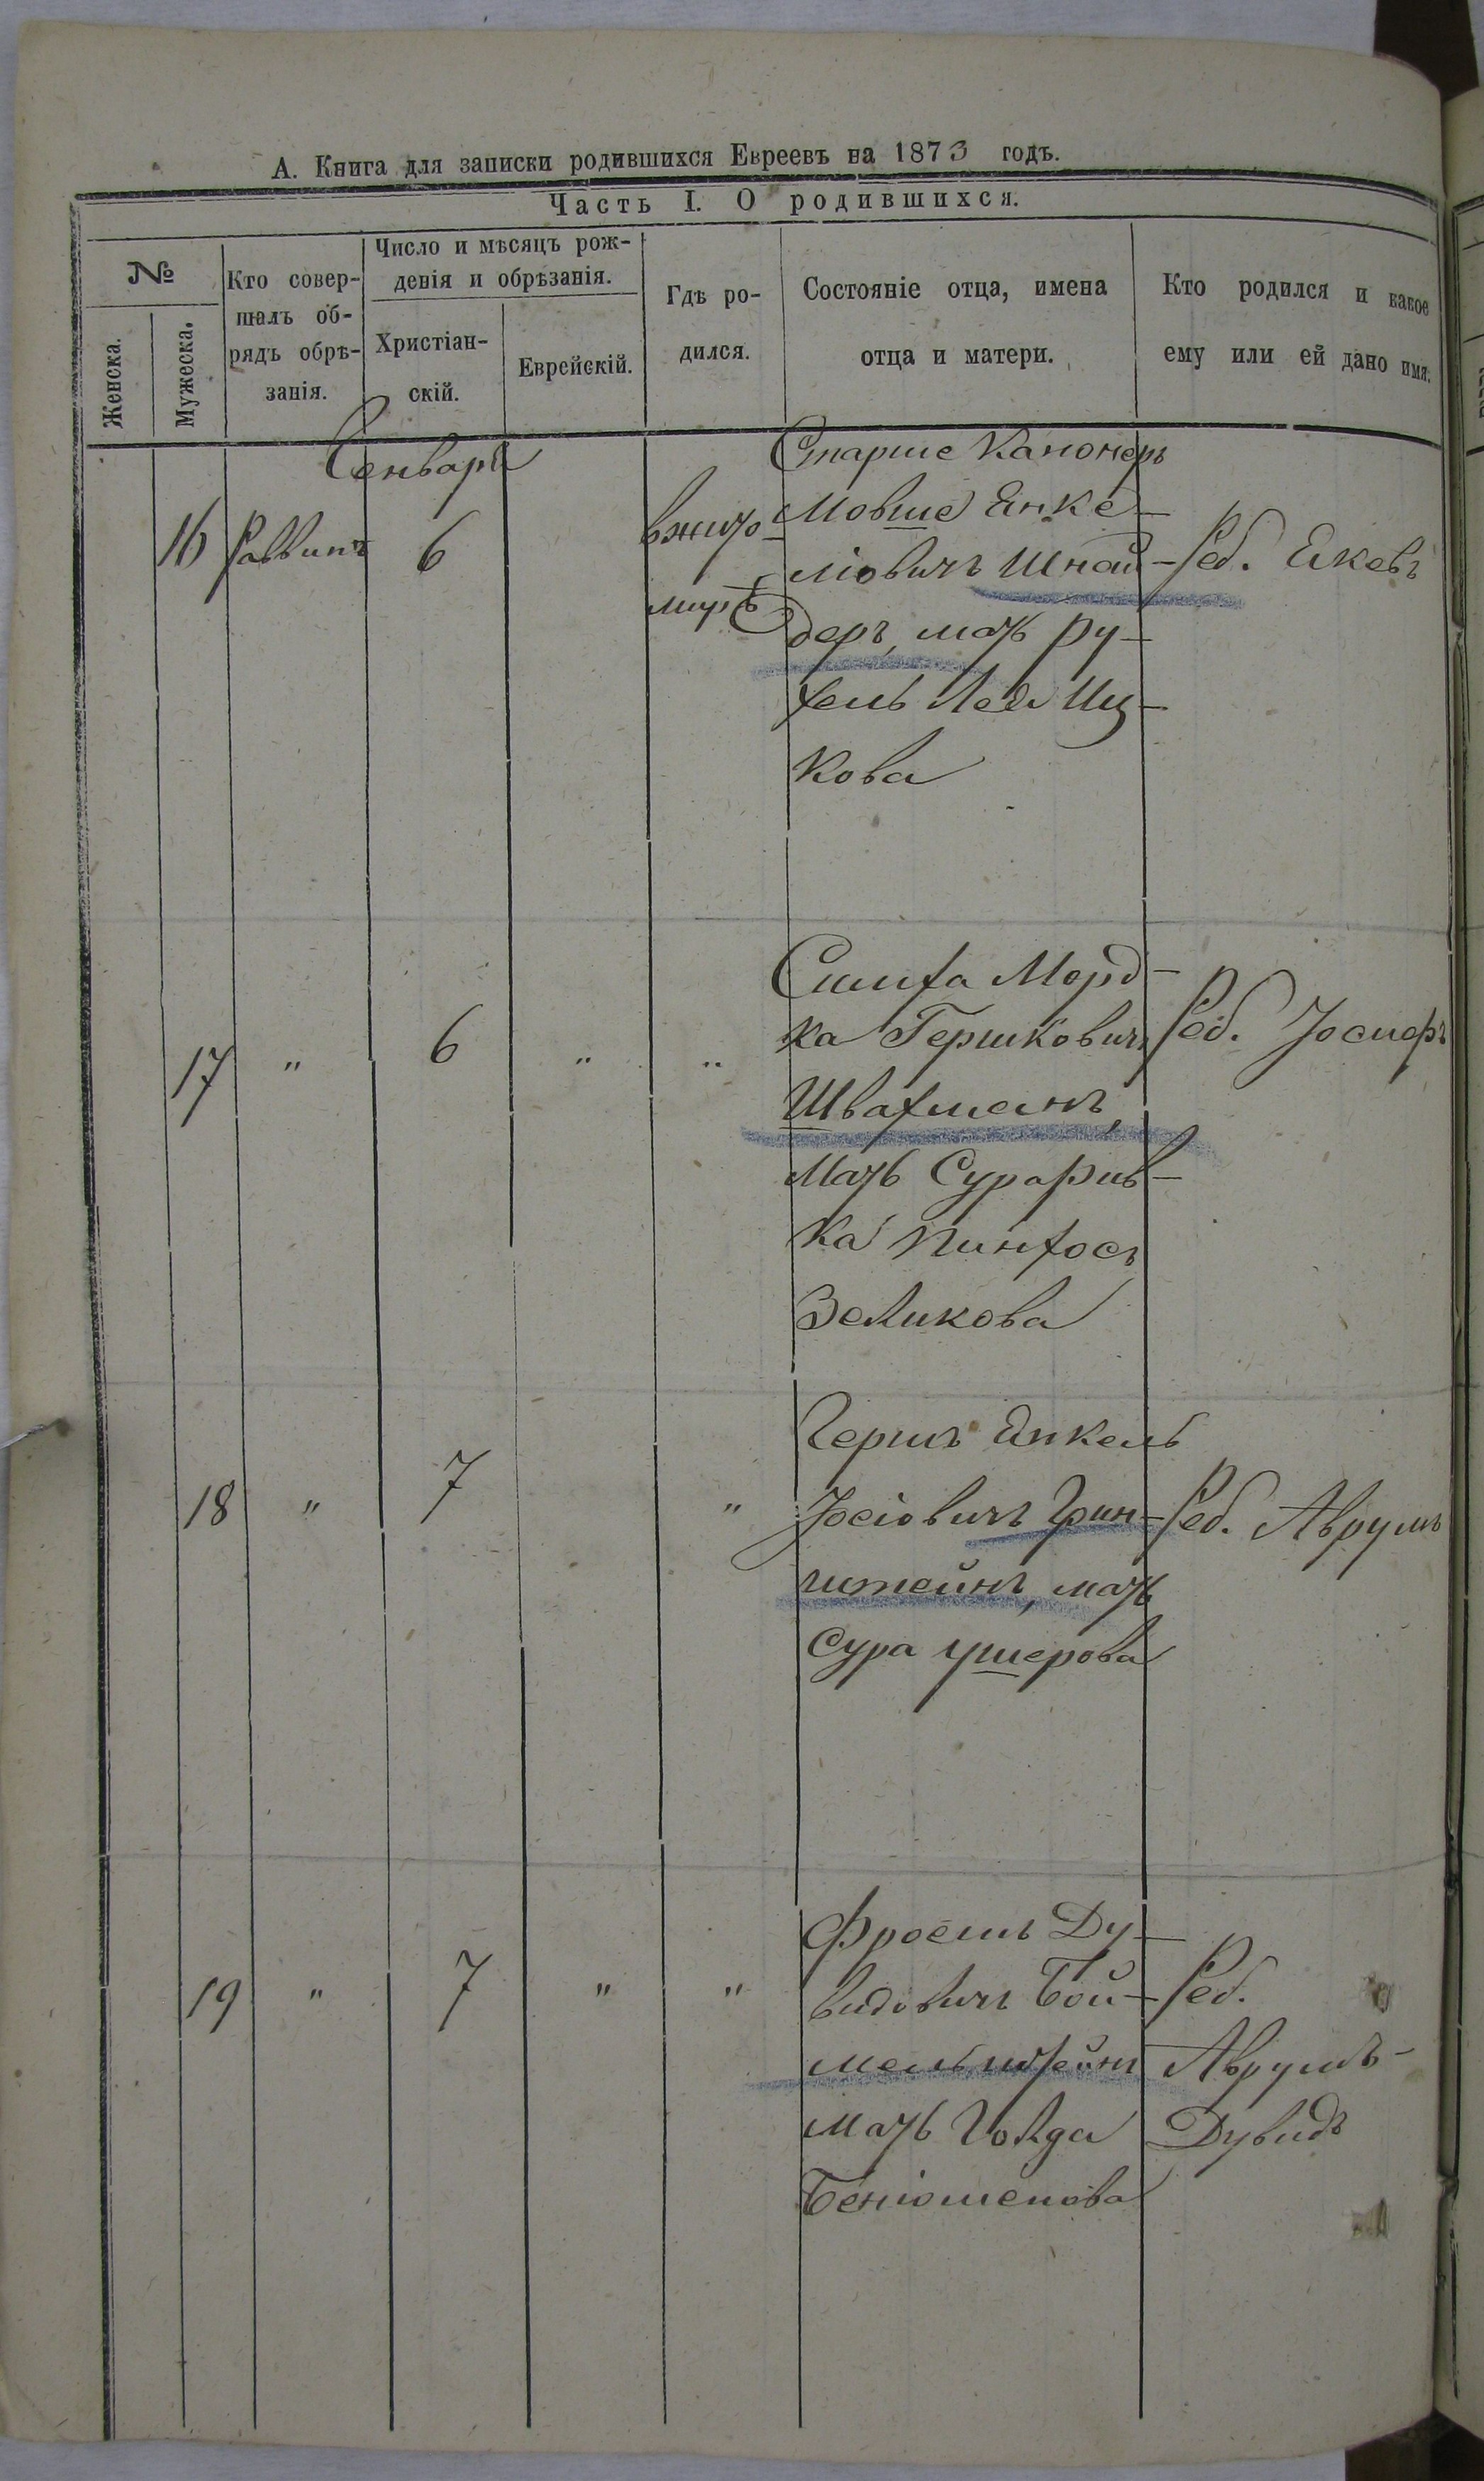 А. Книга для записки родившихся Евреевъ на 1873 годъ.
Часть I. О родившихся.
№
Женска.
Мужеска.
Кто совер-
шалъ об-
рядъ обрѣ-
занія.
Число и мѣсяцъ рож-
денія и обрѣзанія.
Христіан-
скій.
Еврейскій.
Гдѣ ро-
дился.
Состояніе отца, имена
отца и матери.
Кто родился и какое
ему или ей дано имя.
Генваря
16 Раввинъ 6
вжито-
мирѣ
Старше Канонеръ
Мовше Янке-
ліовичъ Шнай-
деръ, мать Ру-
хель Лея Иц-
кова
Реб. Якевъ
17 " 6 " "
Симха Морд-
ка Гершковичъ
Швахманъ,
Мать Сура Рив-
ка Пинхосъ
Зеликова
Реб. Іосифъ
18 " 7 "
Гершъ Янкель
Іосіовичъ Грин-
штейнъ, мать
Сура Ушерова
Реб. Аврумъ
19 " 7 " "
Фроемъ Ду-
видовичъ Бой-
мельштейнъ
мать Голда
Беніоменова
Реб.
Аврумъ-
Дувидъ